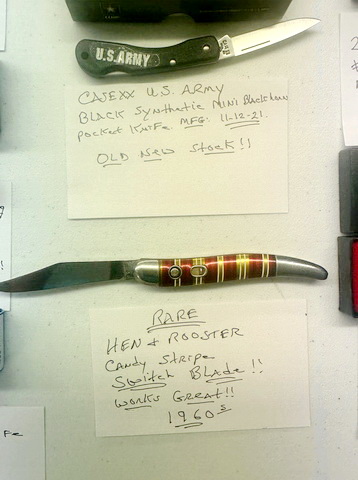 U.S. ARMY
CASEXX U.S. ARMY
BLACK Synthetic MINI Blackhorn
pocket KNIFE. MFG. 11-12-21.
OLD New Stock!!
RARE
HEN & ROOSTER
CANDY Stripe
Switch Blade!!
WORKS GREAT!!
1960s
Fe